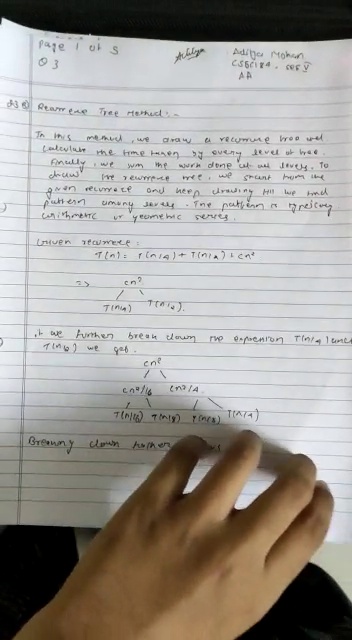 Page 1 of 5
Q3
Aditya Mohan
AA
Recurrence Tree Method:-
In this method, we draw a recurrence tree and
calculate the time taken by every level of tree.
Finally, we sum the work done at all levels. To
draw the recurrence tree, we start from the
given recurrence and keep drawing till we find
pattern among levels. The pattern is typically
arithmetic or geometric series.
Given recurrence:
T(n) = T(n/4) + T(n/2) + cn²
=> cn²
T(n/4) T(n/2).
If we further break down the expression T(n/4) and
T(n/2) we get.
cn²
cn²/16 cn²/4
T(n/16) T(n/8) T(n/8) T(n/4)
Breaking down further